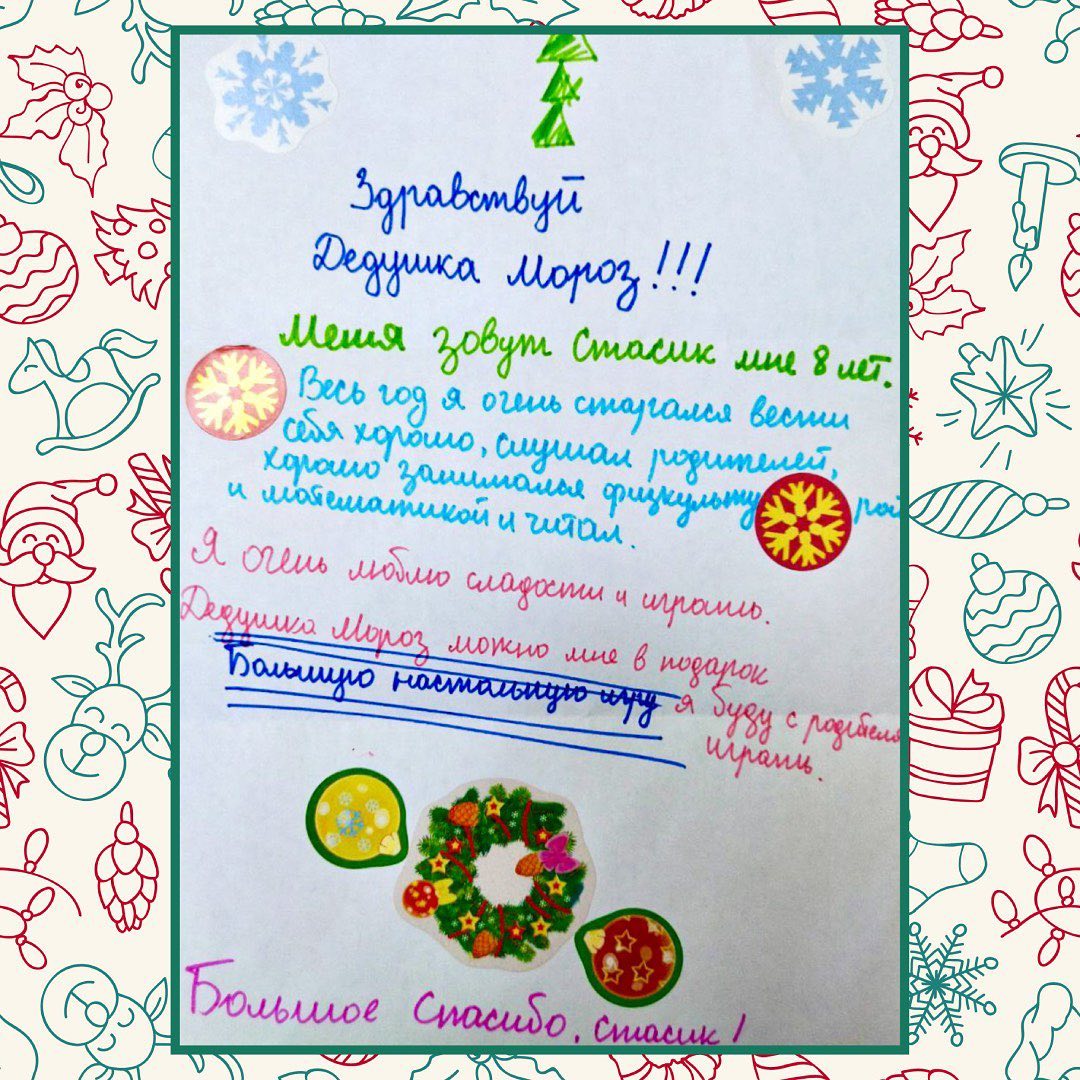 Здравствуй
Дедушка Мороз!!!
Меня зовут Стасик мне 8 лет.
Весь год я очень старался вести
себя хорошо, слушал родителей,
хорошо занимался физкультурой
и математикой и читал.
Я очень люблю сладости и играть.
Дедушка Мороз можно мне в подарок
Большую настольную игру я буду с родителя
играть.
Большое Спасибо, Стасик!